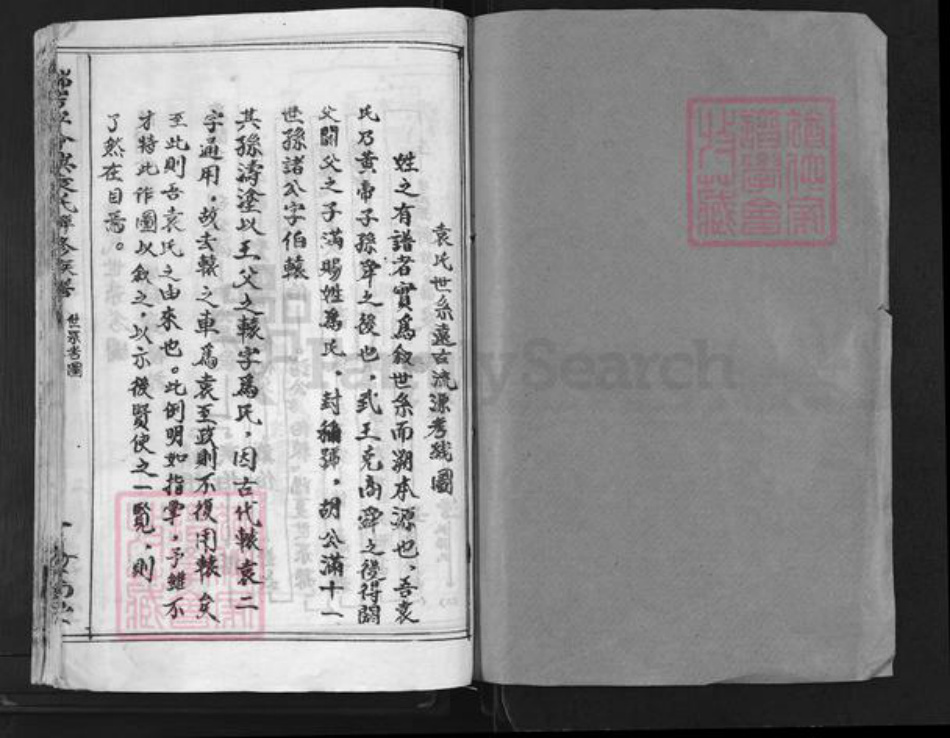 袁氏世系遠古流源考綫圖
姓之有譜者實為敘世系而朔本源也、吾袁
氏乃黃帝子孫舜之後也，武王克商舜之後得閼
父閼父之子滿賜姓為氏，封稱號。胡公滿十一
世孫諸公字伯轅
其孫濤塗以王父之轅字為氏，因古代轅袁二
字通用，故去轅之車為袁至政則不復用轅矣
至此則吾袁氏之由來也。此例明如指掌，予雖不
才特此作圖以敘之，以示後賢使之一覽，則
了然在目焉。
袁氏
修族譜
世系考圖
FamilySearch